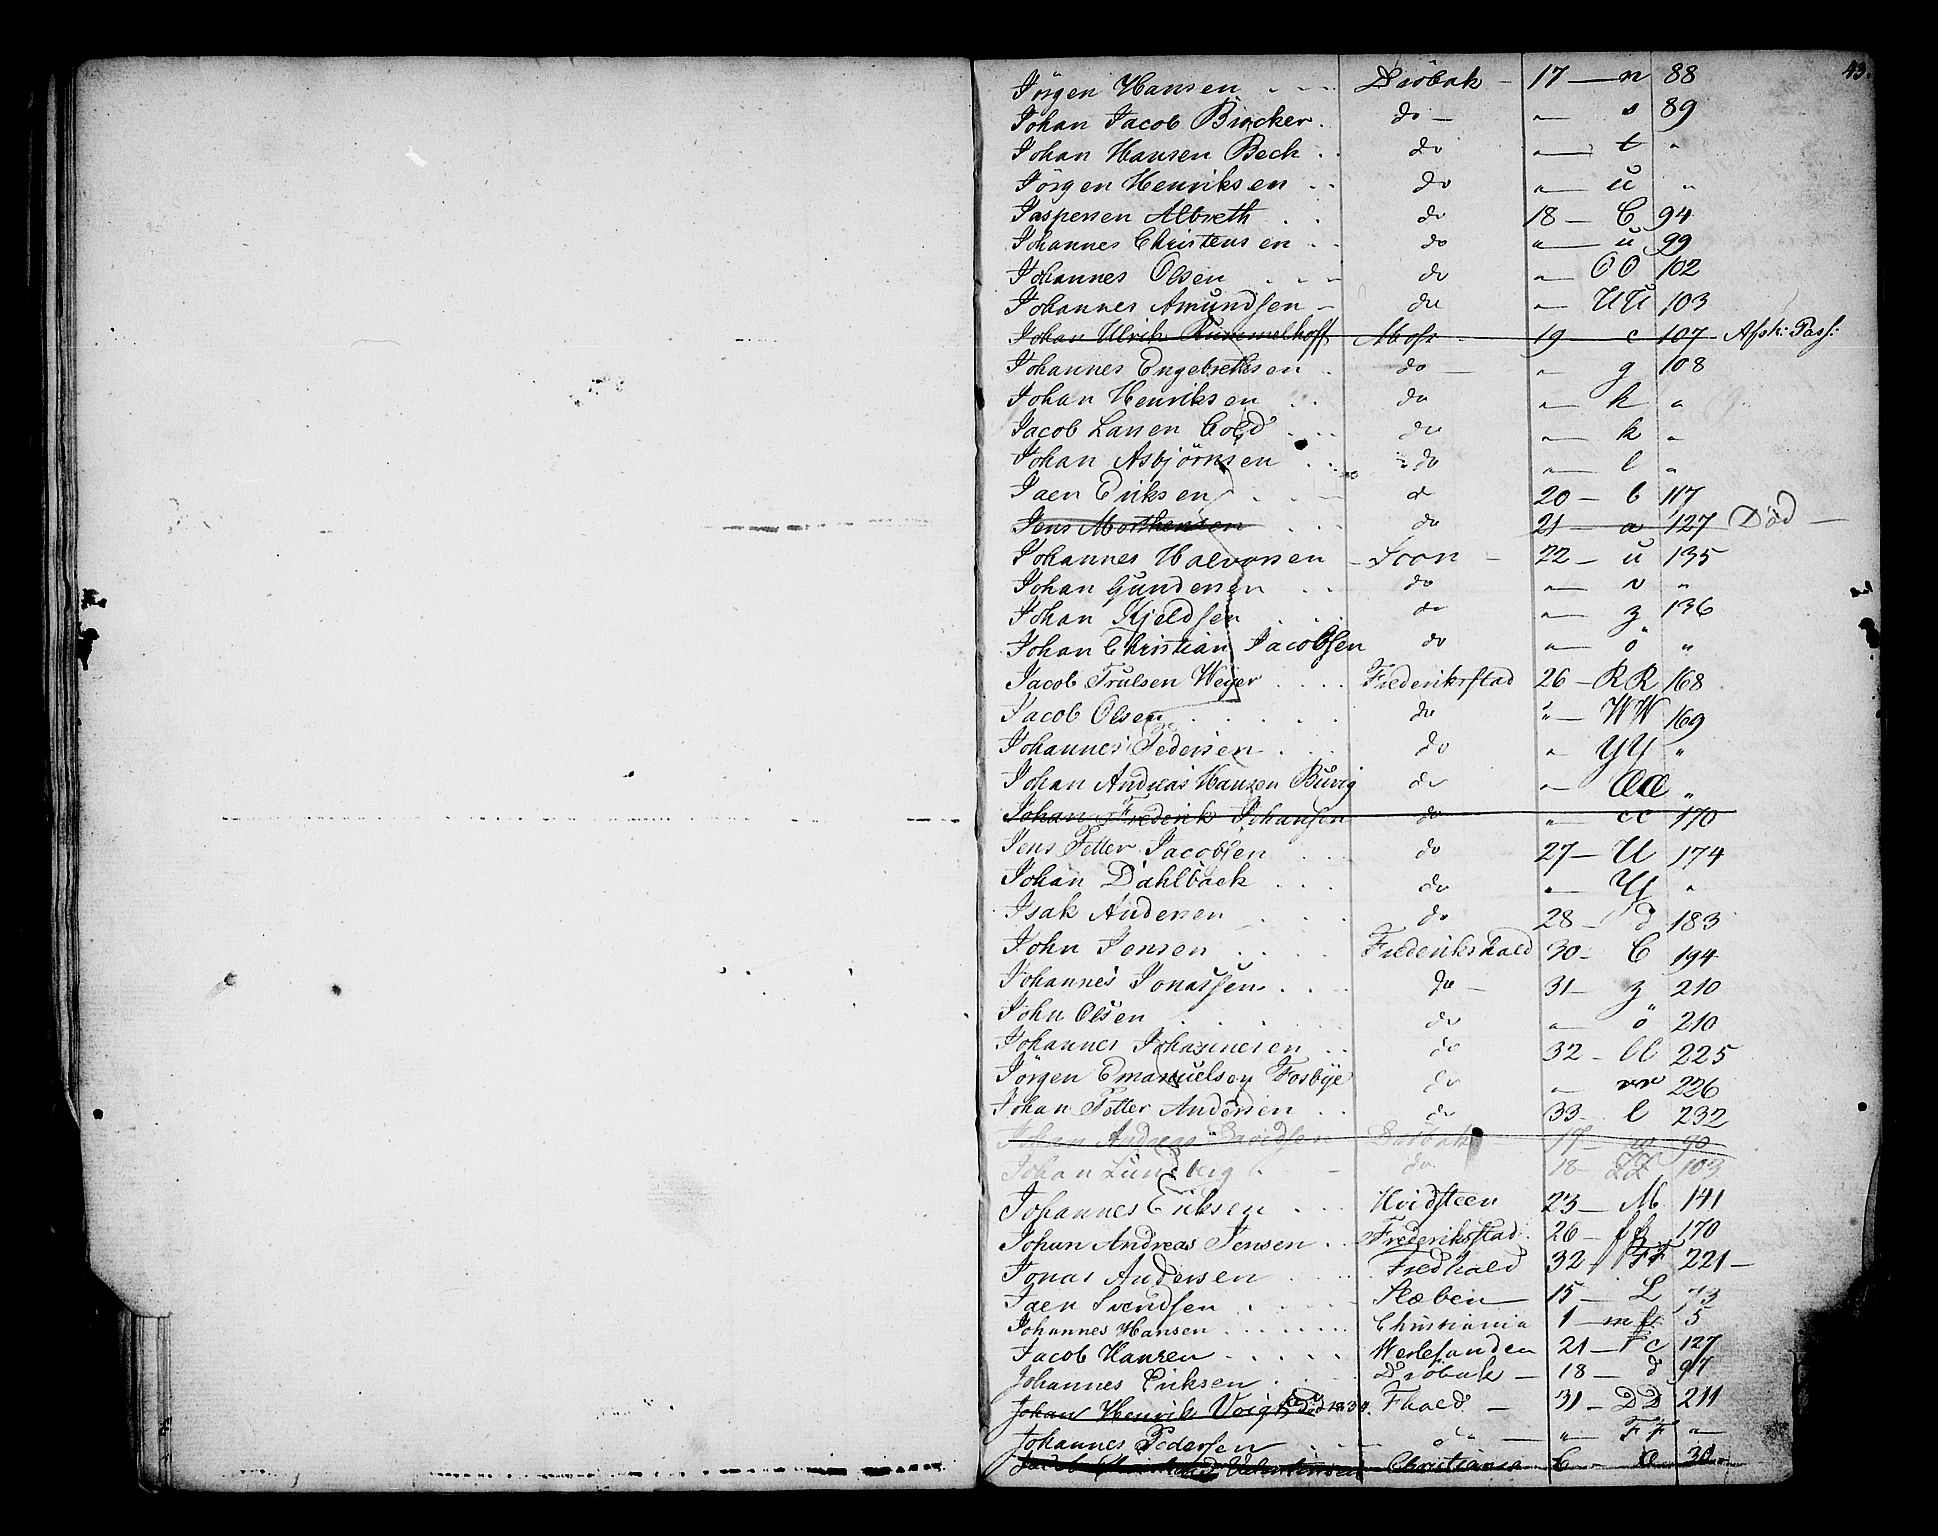 43.
Jörgen Hansen . . . Dröbak - 17 — n 88
Johan Jacob Bröcker . do — " — s 89
Johan Hansen Bech . . do " — t "
Jörgen Henriksen . . do " — u "
Jaspersen Albreth . . do 18 — C 94
Johannes Christensen . . do " — u 99
Johannes Olsen . . . do " — OO 102
Johannes Amundsen — do " — UU 103
Johan Ulrik Kummelhoff Moss 19 c 107 Afsk: Pass:
Johannes Engebrethsen . do — " — g 108
Johan Henriksen . . do " — k "
Jacob Larsen Cold . . . do " — k "
Johan Asbjörnsen . . do " — l "
Jaen Eriksen . . . do 20 — b 117
Jens Morthensen . . . do 21 — a 127 Död —
Johannes Halvorsen — Soon — 22 — u 135
Johan Gundersen . . do " — v "
Johan Kjeldsen . . . do " — z 136
Johan Christian Jacobsen do " — ö "
Jacob Trulsen Weyer . . . . Frederikstad 26 — RR 168
Jacob Olsen . . . . . do " — WW 169
Johannes Pedersen . . . do " YY "
Johan Andreas Hansen Buvig do " — ÆÆ "
Johan Frederik Johansen do " — cc 170
Jens Petter Jacobsen . . do 27 — U 174
Johan Dahlback . . . do " — Y "
Isak Andersen . . . do 28 — d 183
John Jensen . . . . Frederikshald 30 — C 194
Johannes Jonassen . . . do — 31 — z 210
John Olsen . . . . . do " — ö 210
Johannes Johannesen . . do 32 — ll 225
Jörgen Emanuelsen Fosbye do " — vv 226
Johan Petter Andersen . . do 33 — l 232
Johan Andreas Davidsen Dröbak 17 — w 90
Johan Lundberg . — do 18 — ZZ 103
Johannes Eriksen . . . Hvidsteen 23 — M 141
Johan Andreas Jensen . . Frederikstad . 26 — 170
Jonas Andersen . . . . Fredhald 32 FF 221 —
Jaen Svendsen . . . . Slæben — 15 — L 73
Johannes Hansen . . . . . . . Christiania 1 — m 5
Jacob Hansen . . . . . 21 — c 127
Johannes Eriksen . . . . Dröbak — 18 — d 97
Johan Henrik Voigt död 1830. Fhald — 31 — DD 211
Johannes Pedersen . . . " — " — FF "
Valentinsen Christiania 6 — 30